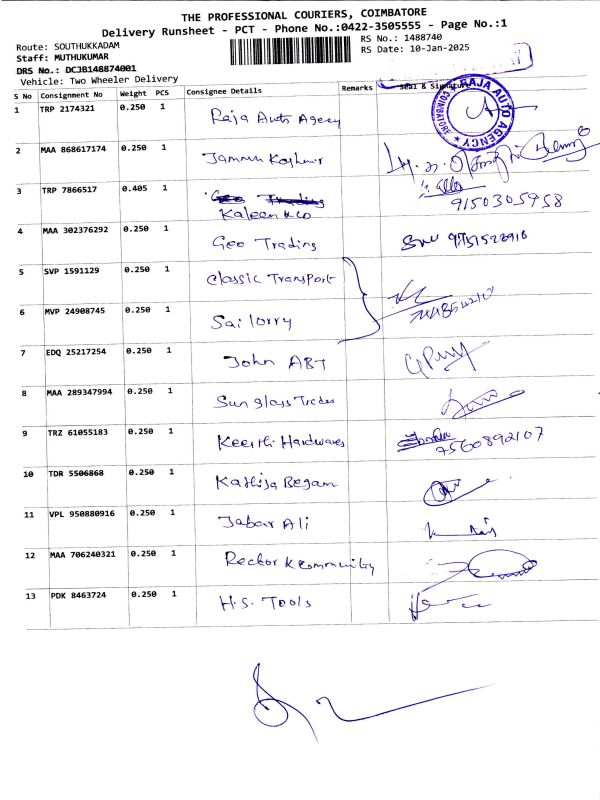 THE PROFESSIONAL COURIERS, COIMBATORE
Delivery Runsheet - PCT - Phone No.:0422-3505555 - Page No.:1
Route: SOUTHUKKADAM
RS No.: 1488740
Staff: MUTHUKUMAR
RS Date: 10-Jan-2025
DRS No.: DCJB148874001
Vehicle: Two Wheeler Delivery
S No Consignment No Weight PCS Consignee Details Remarks Seal & Signature
1 TRP 2174321 0.250 1 Raja Auto Agency
RAJA AUTO AGENCY COIMBATORE
2 MAA 868617174 0.250 1 Jammu Kashmir
3 TRP 7866517 0.405 1 Geo Trading
Kaleen & co 9150305958
4 MAA 302376292 0.250 1 Geo Trading
5 SVP 1591129 0.250 1 Classic Transport
6 MVP 24908745 0.250 1 Sai lorry
7 EDQ 25217254 0.250 1 John ABT
8 MAA 289347994 0.250 1 Sun glass Trades
9 TRZ 61055183 0.250 1 Keerthi Hardwares
7560892107
10 TDR 5506868 0.250 1 Kathija Begam
11 VPL 950880916 0.250 1 Jabar Ali
12 MAA 706240321 0.250 1 Rector Kcommunity
13 PDK 8463724 0.250 1 H.S. Tools